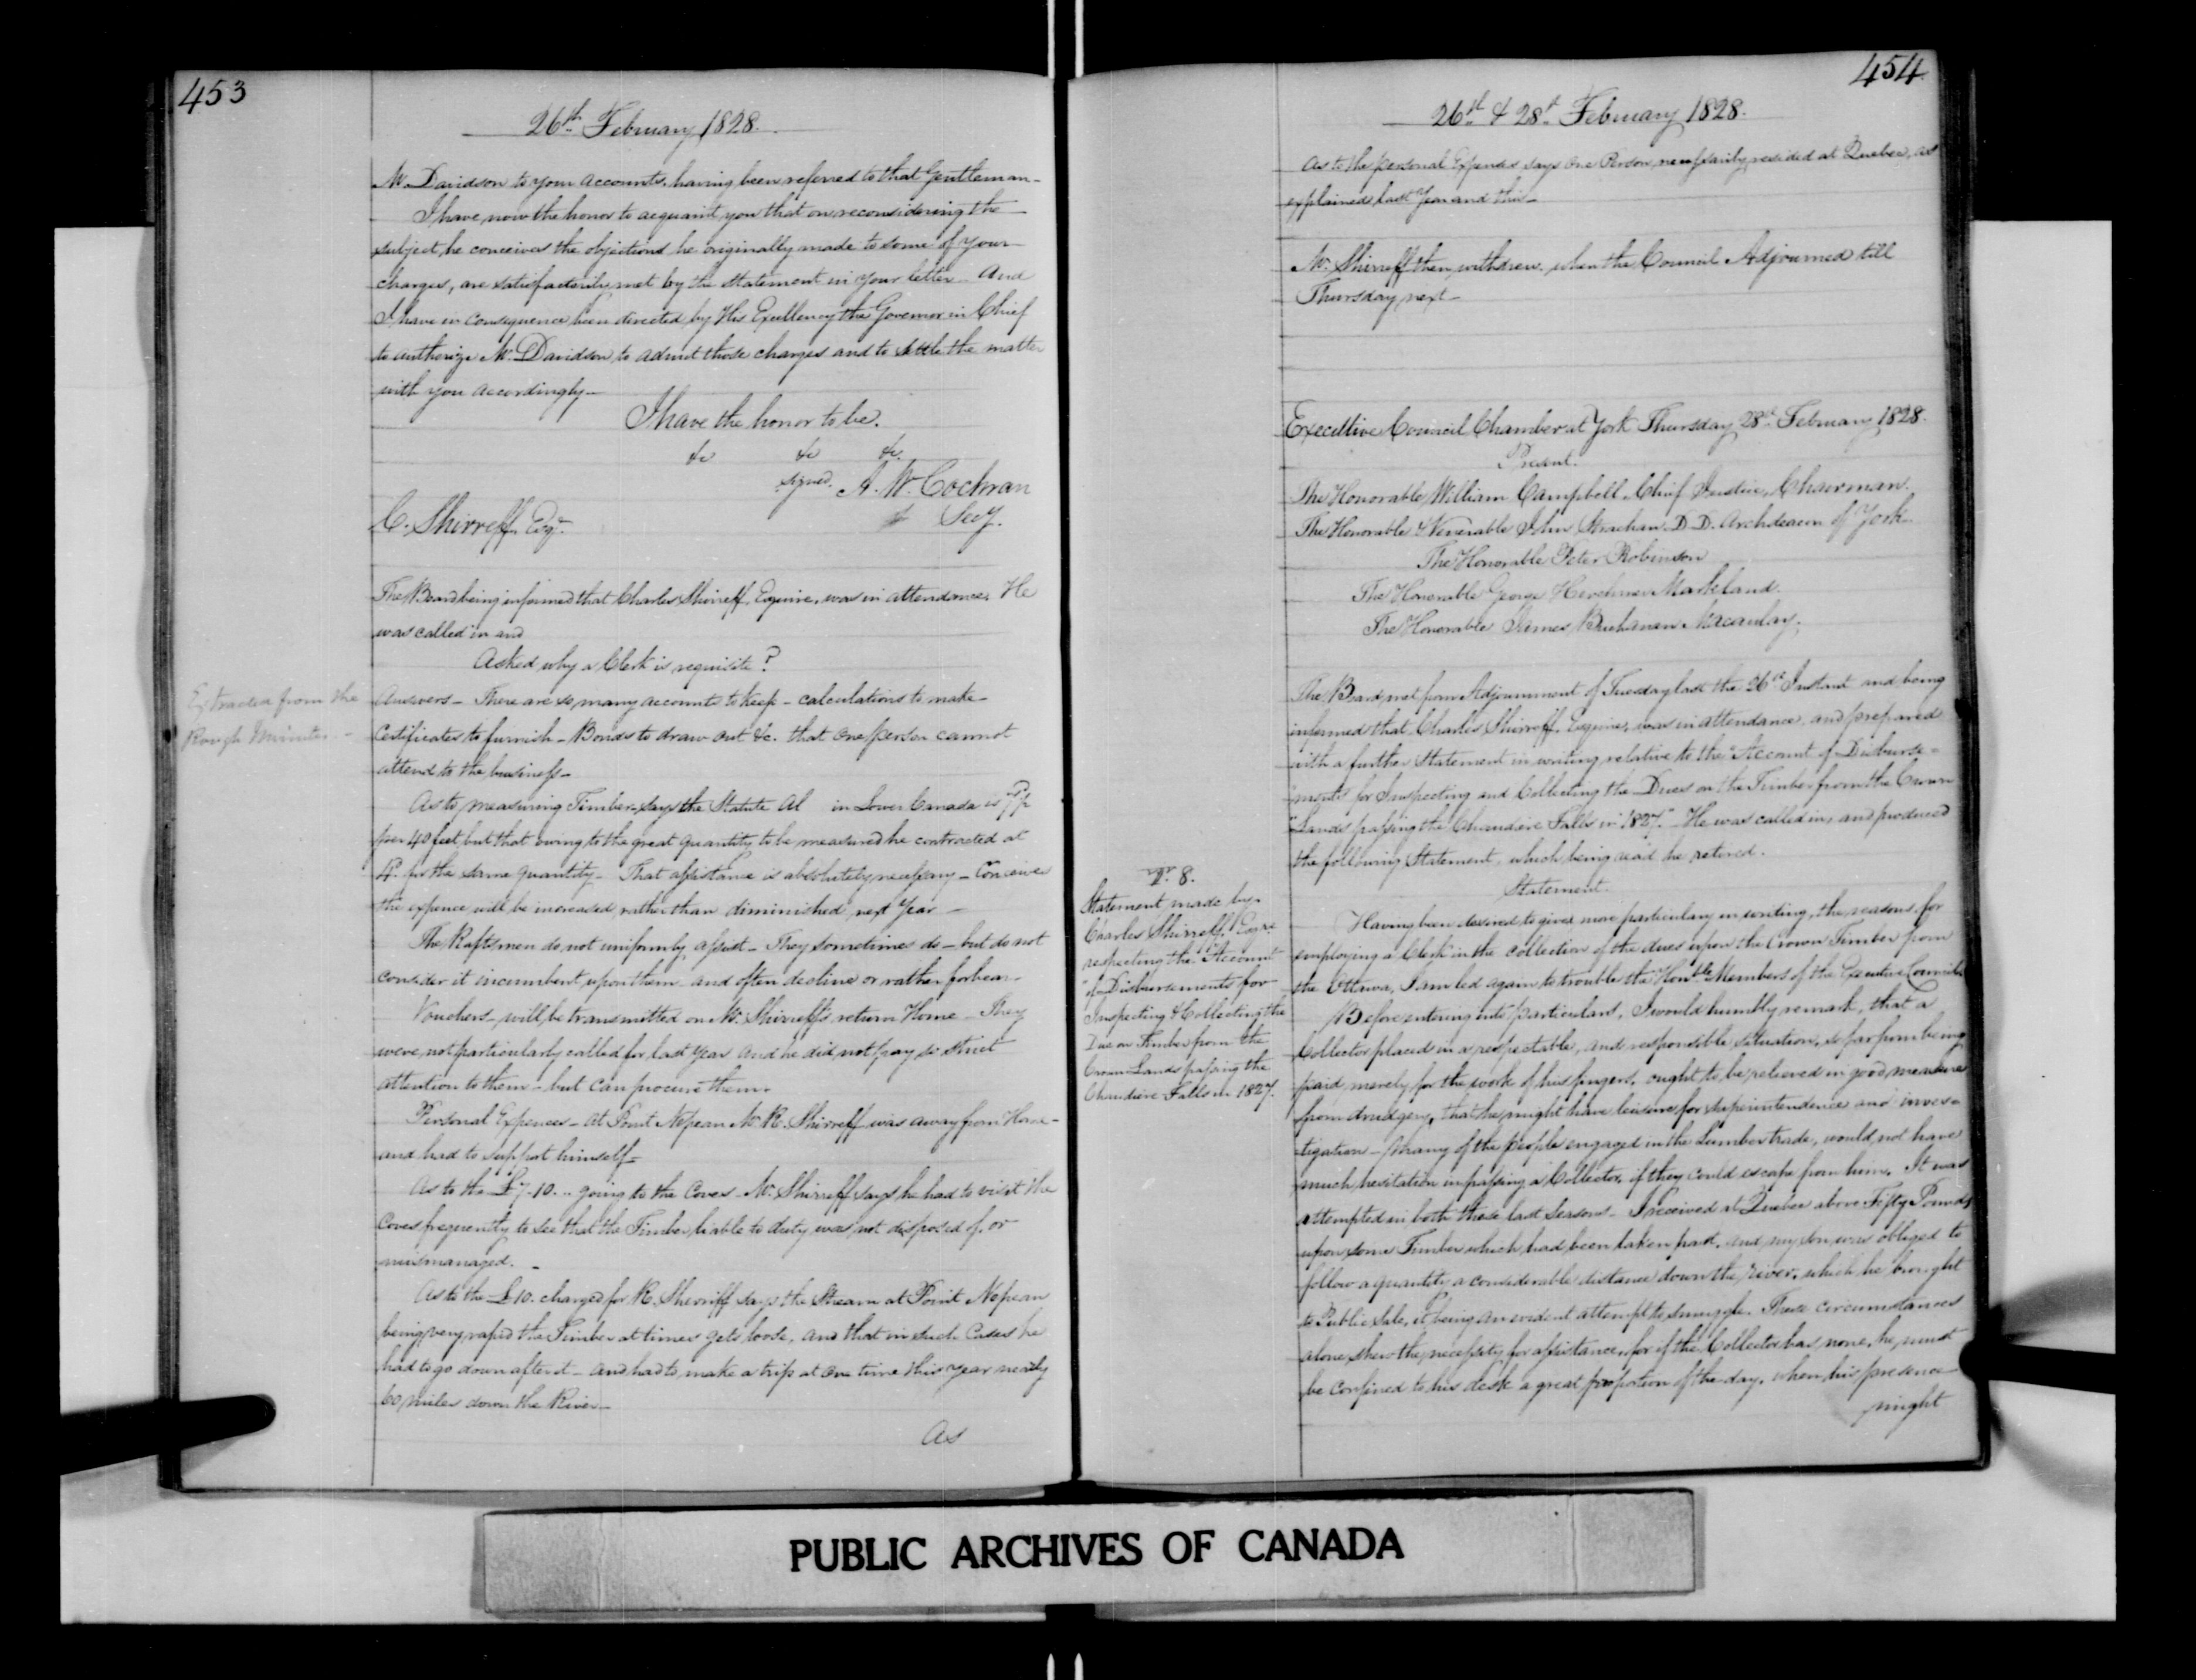 453
26th February 1828.
Mr. Davidson to your accounts, having been referred to that Gentleman_
I have now the honor to acquaint you that on reconsidering the
subject, he conceives the objections he originally made to some of your
charges, are satisfactorily met by the statement in your letter_ And
I have in consequence been directed by His Excellency the Governor in Chief
to authorize Mr. Davidson to admit those charges and to settle the matter
with you accordingly_
I have the honor to be.
&c &c &c.
signed. A. W. Cochran
Secy.
C. Shirreff Esqr.
The Board being informed that Charles Shirreff, Esquire, was in attendance. He
was called in and
Asked why a Clerk is requisite?
Extracted from the
Rough Minutes _
Answers_ There are so many accounts to keep_ calculations to make
Certificates to furnish_ Bonds to draw out &c. that one person cannot
attend to the business_
As to measuring Timber_ says the Statute al in Lower Canada is
per 40 feet, but that owing to the great quantity to be measured he contracted at
4d. for the same quantity_ That assistance is absolutely necessary_ Conceives
the expence will be increased rather than diminished next Year_
The Raftsmen do not uniformly assist_ They sometimes do_ but do not
consider it incumbent upon them_ and often decline or rather forbear_
Vouchers_ will be transmitted on Mr. Shirreff's return Home_ They
were not particularly called for last year and he did not pay so strict
attention to them_ but can procure them.
Personal Expences_ At Point Nepean Mr. R. Shirreff was away from Home_
and had to support himself_
As to the £7.10.. going to the Coves_ Mr. Shirreff says he had to visit the
Coves frequently to see that the Timber liable to duty was not disposed of, or
mismanaged._
As to the £10. charged for R. Sherriff says the Stream at Point Nepean
being very rapid the Timber at times gets loose, and that in such Cases he
had to go down after it_ and had to make a trip at one time this year nearly
60 miles down the River_
As
454
26th & 28th February 1828.
As to the personal Expenses says one Person necessarily resided at Quebec, as
explained last Year and this_
Mr. Shirreff then withdrew. when the Council Adjourned till
Thursday next_
Executive Council Chamber at York Thursday 28th February 1828.
Present.
The Honorable William Campbell Chief Justice, Chairman.
The Honorable & Venerable John Strachan. D.D. Archdeacon of York.
The Honorable Peter Robinson
The Honorable George Herchmer Markland.
The Honorable James Buchanan Macaulay.
The Board met from Adjournment of Tuesday last the 26th Instant and being
informed that Charles Shirreff, Esquire, was in attendance and prepared
with a further Statement in writing relative to the "Account of Disburse=
"ments for Inspecting and Collecting the Dues on the Timber from the Crown
"Lands passing the Chaudiere Falls in 1827."_ He was called in, and produced
the following Statement, which being read he retired.
Statement.
No. 8.
Statement made by
Charles Shirreff, Esqre.
respecting the "Account
"of Disbursements for
Inspecting & Collecting the
Dues on Timber from the
Crown Lands passing the
Chaudiere Falls in 1827.
Having been desired to give more particulary in writing, the reasons for
employing a Clerk in the collection of the dues upon the Crown Timber from
the Ottawa, I am led again to trouble the Honble. Members of the Executive Council.
Before entering into particulars, I would humbly remark, that a
Collector placed in a respectable, and responsible situation, so far from being
paid merely for the work of his fingers, ought to be relieved in good measure
from drudgery, that he might have leisure for superintendence and inves=
tigation_ Many of the people engaged in the Lumber trade, would not have
much hesitation in passing a Collector, if they could escape from him. It was
attempted in both these last Seasons_ I received at Quebec above Fifty Pounds
upon some Timber which had been taken past, and my son was obliged to
follow a quantity a considerable distance down the river, which he brought
to Public Sale, it being an evident attempt to smuggle. These circumstances
alone shew the necessity for assistance, for if the Collector has none, he must
be confined to his desk a great proportion of the day, when his presence
might
PUBLIC ARCHIVES OF CANADA